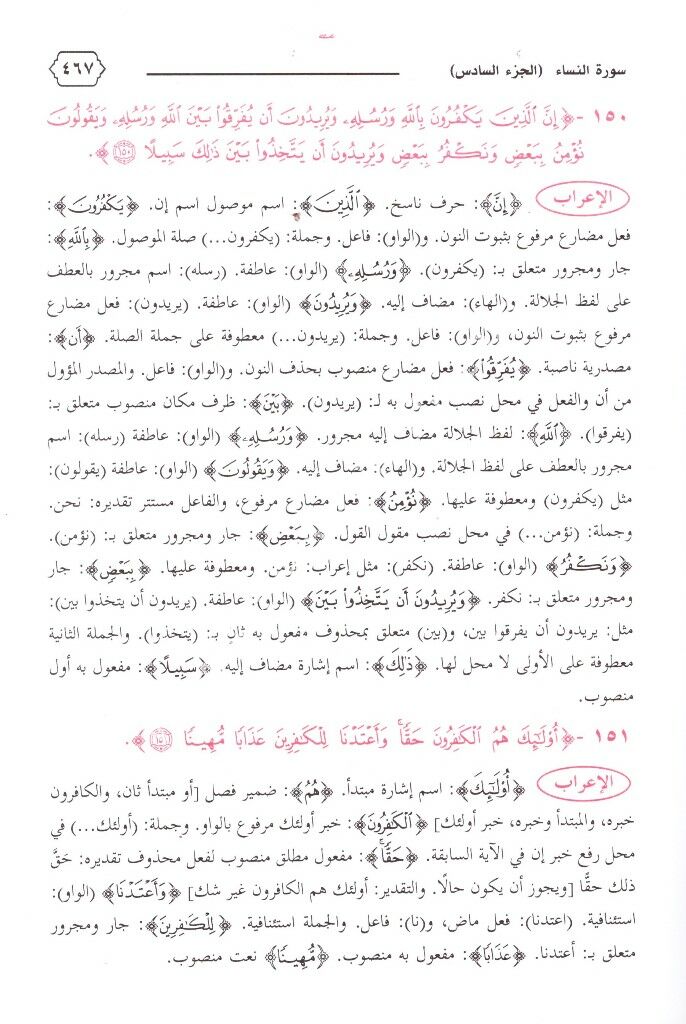 سورة النساء (الجزء السادس) ٤٦٧
١٥٠ -﴿إِنَّ ٱلَّذِينَ يَكْفُرُونَ بِٱللَّهِ وَرُسُلِهِۦ وَيُرِيدُونَ أَن يُفَرِّقُوا۟ بَيْنَ ٱللَّهِ وَرُسُلِهِۦ وَيَقُولُونَ
نُؤْمِنُ بِبَعْضٍ وَنَكْفُرُ بِبَعْضٍ وَيُرِيدُونَ أَن يَتَّخِذُوا۟ بَيْنَ ذَٰلِكَ سَبِيلًا ۝١٥٠﴾.
الإعراب ﴿إِنَّ﴾: حرف ناسخ. ﴿ٱلَّذِينَ﴾: اسم موصول اسم إن. ﴿يَكْفُرُونَ﴾:
فعل مضارع مرفوع بثبوت النون. و(الواو): فاعل. وجملة: (يكفرون...) صلة الموصول. ﴿بِٱللَّهِ﴾:
جار ومجرور متعلق بـ: (يكفرون). ﴿وَرُسُلِهِۦ﴾ (الواو): عاطفة. (رسله): اسم مجرور بالعطف
على لفظ الجلالة. و(الهاء): مضاف إليه. ﴿وَيُرِيدُونَ﴾ (الواو): عاطفة. (يريدون): فعل مضارع
مرفوع بثبوت النون، و(الواو): فاعل. وجملة: (يريدون...) معطوفة على جملة الصلة. ﴿أَن﴾:
مصدرية ناصبة. ﴿يُفَرِّقُوا۟﴾: فعل مضارع منصوب بحذف النون. و(الواو): فاعل. والمصدر المؤول
من أن والفعل في محل نصب مفعول به لـ: (يريدون). ﴿بَيْنَ﴾: ظرف مكان منصوب متعلق بـ:
(يفرقوا). ﴿ٱللَّهِ﴾: لفظ الجلالة مضاف إليه مجرور. ﴿وَرُسُلِهِۦ﴾ (الواو): عاطفة (رسله): اسم
مجرور بالعطف على لفظ الجلالة. و(الهاء): مضاف إليه. ﴿وَيَقُولُونَ﴾ (الواو): عاطفة (يقولون):
مثل (يكفرون) ومعطوفة عليها. ﴿نُؤْمِنُ﴾: فعل مضارع مرفوع، والفاعل مستتر تقديره: نحن.
وجملة: (نؤمن...) في محل نصب مقول القول. ﴿بِبَعْضٍ﴾: جار ومجرور متعلق بـ: (نؤمن).
﴿وَنَكْفُرُ﴾ (الواو): عاطفة. (نكفر): مثل إعراب: نؤمن. ومعطوفة عليها. ﴿بِبَعْضٍ﴾: جار
ومجرور متعلق بـ: نكفر. ﴿وَيُرِيدُونَ أَن يَتَّخِذُوا۟ بَيْنَ﴾ (الواو): عاطفة. (يريدون أن يتخذوا بين):
مثل: يريدون أن يفرقوا بين، و(بين) متعلق بمحذوف مفعول به ثان بـ: (يتخذوا). والجملة الثانية
معطوفة على الأولى لا محل لها. ﴿ذَٰلِكَ﴾: اسم إشارة مضاف إليه. ﴿سَبِيلًا﴾: مفعول به أول
منصوب.
١٥١ -﴿أُو۟لَٰٓئِكَ هُمُ ٱلْكَٰفِرُونَ حَقًّا ۚ وَأَعْتَدْنَا لِلْكَٰفِرِينَ عَذَابًا مُّهِينًا ۝١٥١﴾.
الإعراب ﴿أُو۟لَٰٓئِكَ﴾: اسم إشارة مبتدأ. ﴿هُمُ﴾: ضمير فصل [أو مبتدأ ثان، والكافرون
خبره، والمبتدأ وخبره، خبر أولئك] ﴿ٱلْكَٰفِرُونَ﴾: خبر أولئك مرفوع بالواو. وجملة: (أولئك...) في
محل رفع خبر إن في الآية السابقة. ﴿حَقًّا ۚ﴾: مفعول مطلق منصوب لفعل محذوف تقديره: حَقَّ
ذلك حقًّا [ويجوز أن يكون حالًا. والتقدير: أولئك هم الكافرون غير شك] ﴿وَأَعْتَدْنَا﴾ (الواو):
استئنافية. (اعتدنا): فعل ماض، و(نا): فاعل. والجملة استئنافية. ﴿لِلْكَٰفِرِينَ﴾: جار ومجرور
متعلق بـ: أعتدنا. ﴿عَذَابًا﴾: مفعول به منصوب. ﴿مُّهِينًا﴾ نعت منصوب.